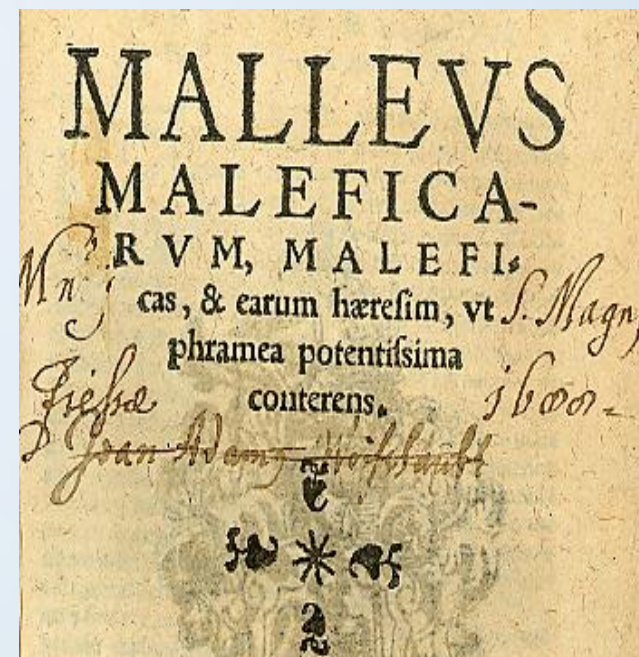 MALLEVS
MALEFICA-
RVM, MALEFI-
cas, & earum hæresim, vt S. Magn
phramea potentissima
conterens. 1600
Joan Adamg